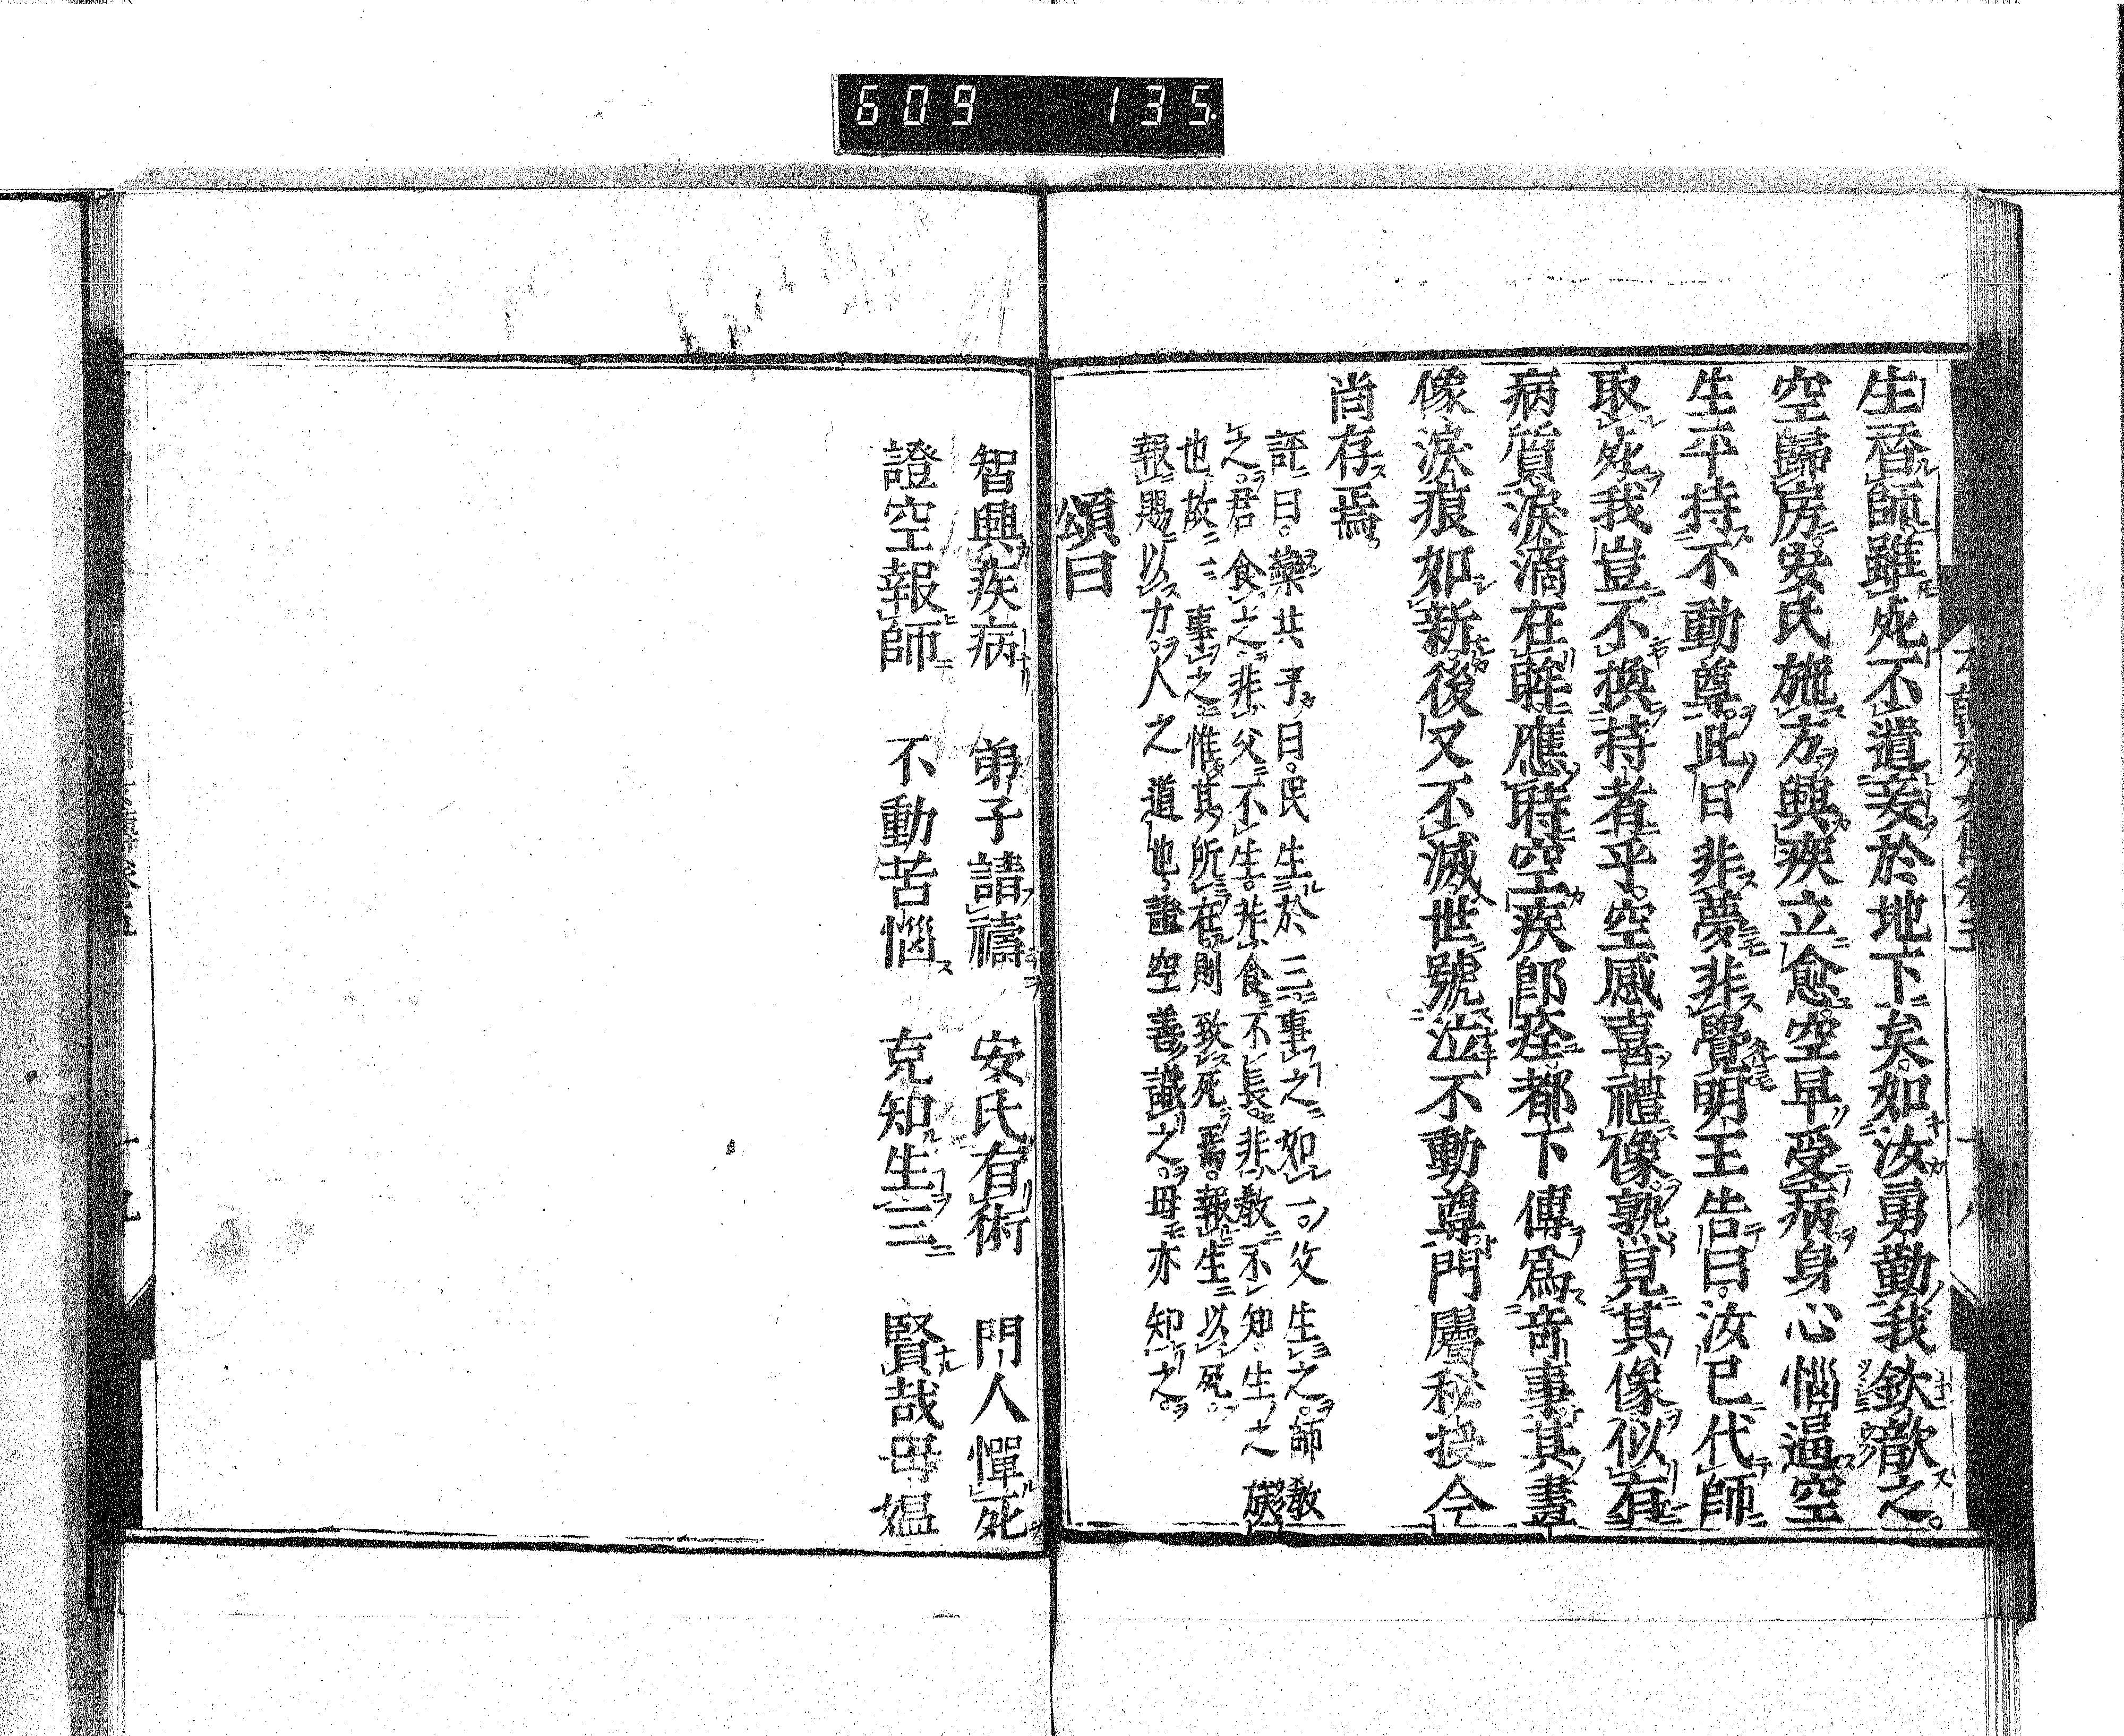 609 135
生替師雖死不遺妾於地下矣如汝勇勤我欽歡之
空歸房安氏施方興疾立愈空早受病身心惱逼空
生平持不動尊此日非夢非覺明王告曰汝已代師
取死我豈不換持者乎空感喜禮像熟見其像似有
病質淚滴在眸應時空疾即痊都下傳爲奇事其畫
像淚痕如新後又不滅世號泣不動尊門屬秘授今
尚存焉
註曰欒共子曰民生於三事之如一父生之師教
之君食之非父不生非食不長非教不知生之族
也故一事之惟其所在則致死焉報生以死
報賜以力人之道也證空善識之母亦知之
頌曰
智興疾病 弟子請禱 安氏有術 門人憚死
證空報師 不動苦惱 克知生三 賢哉母媼